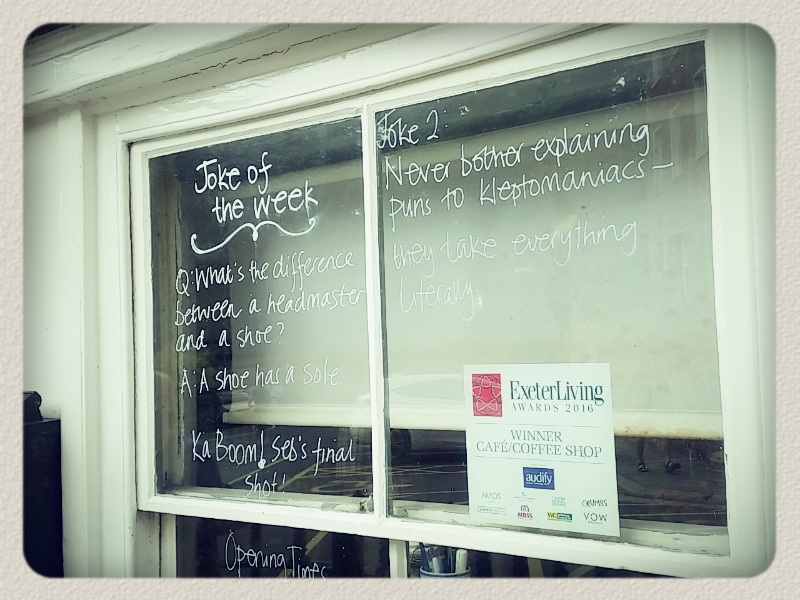 Joke of
the week
Q: What's the difference
between a headmaster
and a shoe?
A: A shoe has a sole.
KaBoom! Seb's final
shot!
Opening Times
Joke 2:
Never bother explaining
puns to kleptomaniacs—
they take everything
literally.
ExeterLiving
AWARDS 2016
WINNER
CAFÉ/COFFEE SHOP
audify
AMOS
CRUMBS
MBSS
VOW